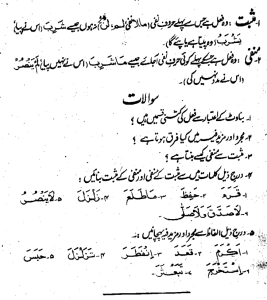 ۱- مثبت: وہ فعل ہے جس سے پہلے حرف نفی (ما، لا، لم، لن) نہ ہوں جیسے شَرِبَ (اس نے پیا)
یَشْرَبُ (وہ پیتا ہے یا پئے گا)۔
۲- منفی: وہ فعل ہے جس سے پہلے کوئی حرف نفی آ جائے جیسے مَا شَرِبَ (اس نے نہیں پیا) لَمْ یَنْصُرْ
(اس نے مدد نہیں کی)
سوالات
۱- بناوٹ کے اعتبار سے فعل کی کتنی قسمیں ہیں؟
۲- مجرد اور مزید فیہ میں کیا فرق ہوتا ہے؟
۳- مثبت سے منفی کیسے بنتا ہے؟
۴- درج ذیل کلمات میں سے مثبت کے منفی اور منفی کے مثبت بتائیں:
۱- قَرَءَ ۲- حَفِظَ ۳- مَا طَلَعَ ۴- زَلْزَلَ ۵- لَا یَنْصُرُ
۶- لَا صَدَّقَ وَلَا صَلّٰی
۵- درج ذیل الفاظ سے مجرد اور مزید فیہ پہچانیے:
۱- اَکْرَمَ ۲- قَعَدَ ۳- اِنْفَطَرَ ۴- تَزَلْزَلَ ۵- حَبَسَ
۶- اِسْتَخْرَجَ ۷- بَعْثَرَ